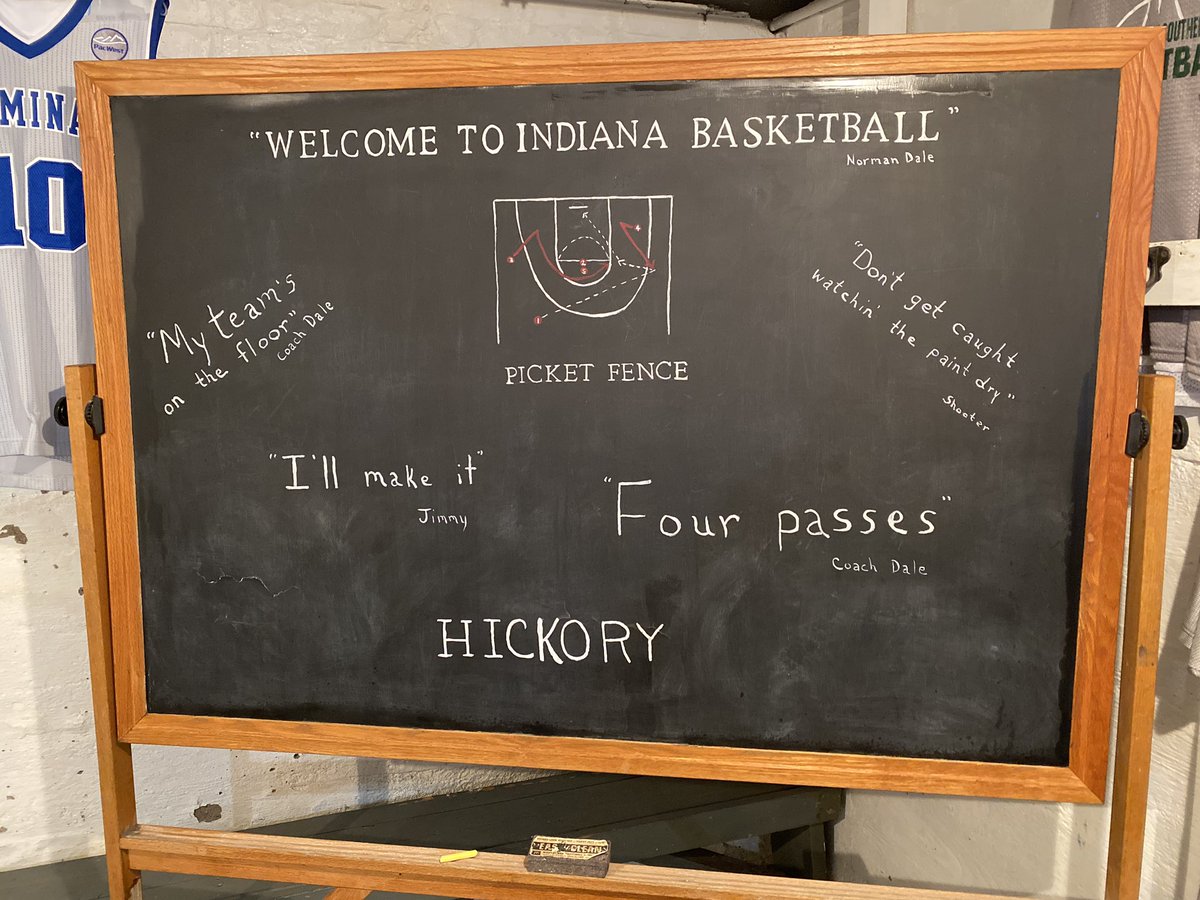 PacWest
MINA
10
OUTHE
TBA
"WELCOME TO INDIANA BASKETBALL"
Norman Dale
"My team's
on the floor"
Coach Dale
"Don't get caught
watchin' the paint dry"
Shooter
PICKET FENCE
"I'll make it"
Jimmy
"Four passes"
Coach Dale
HICKORY